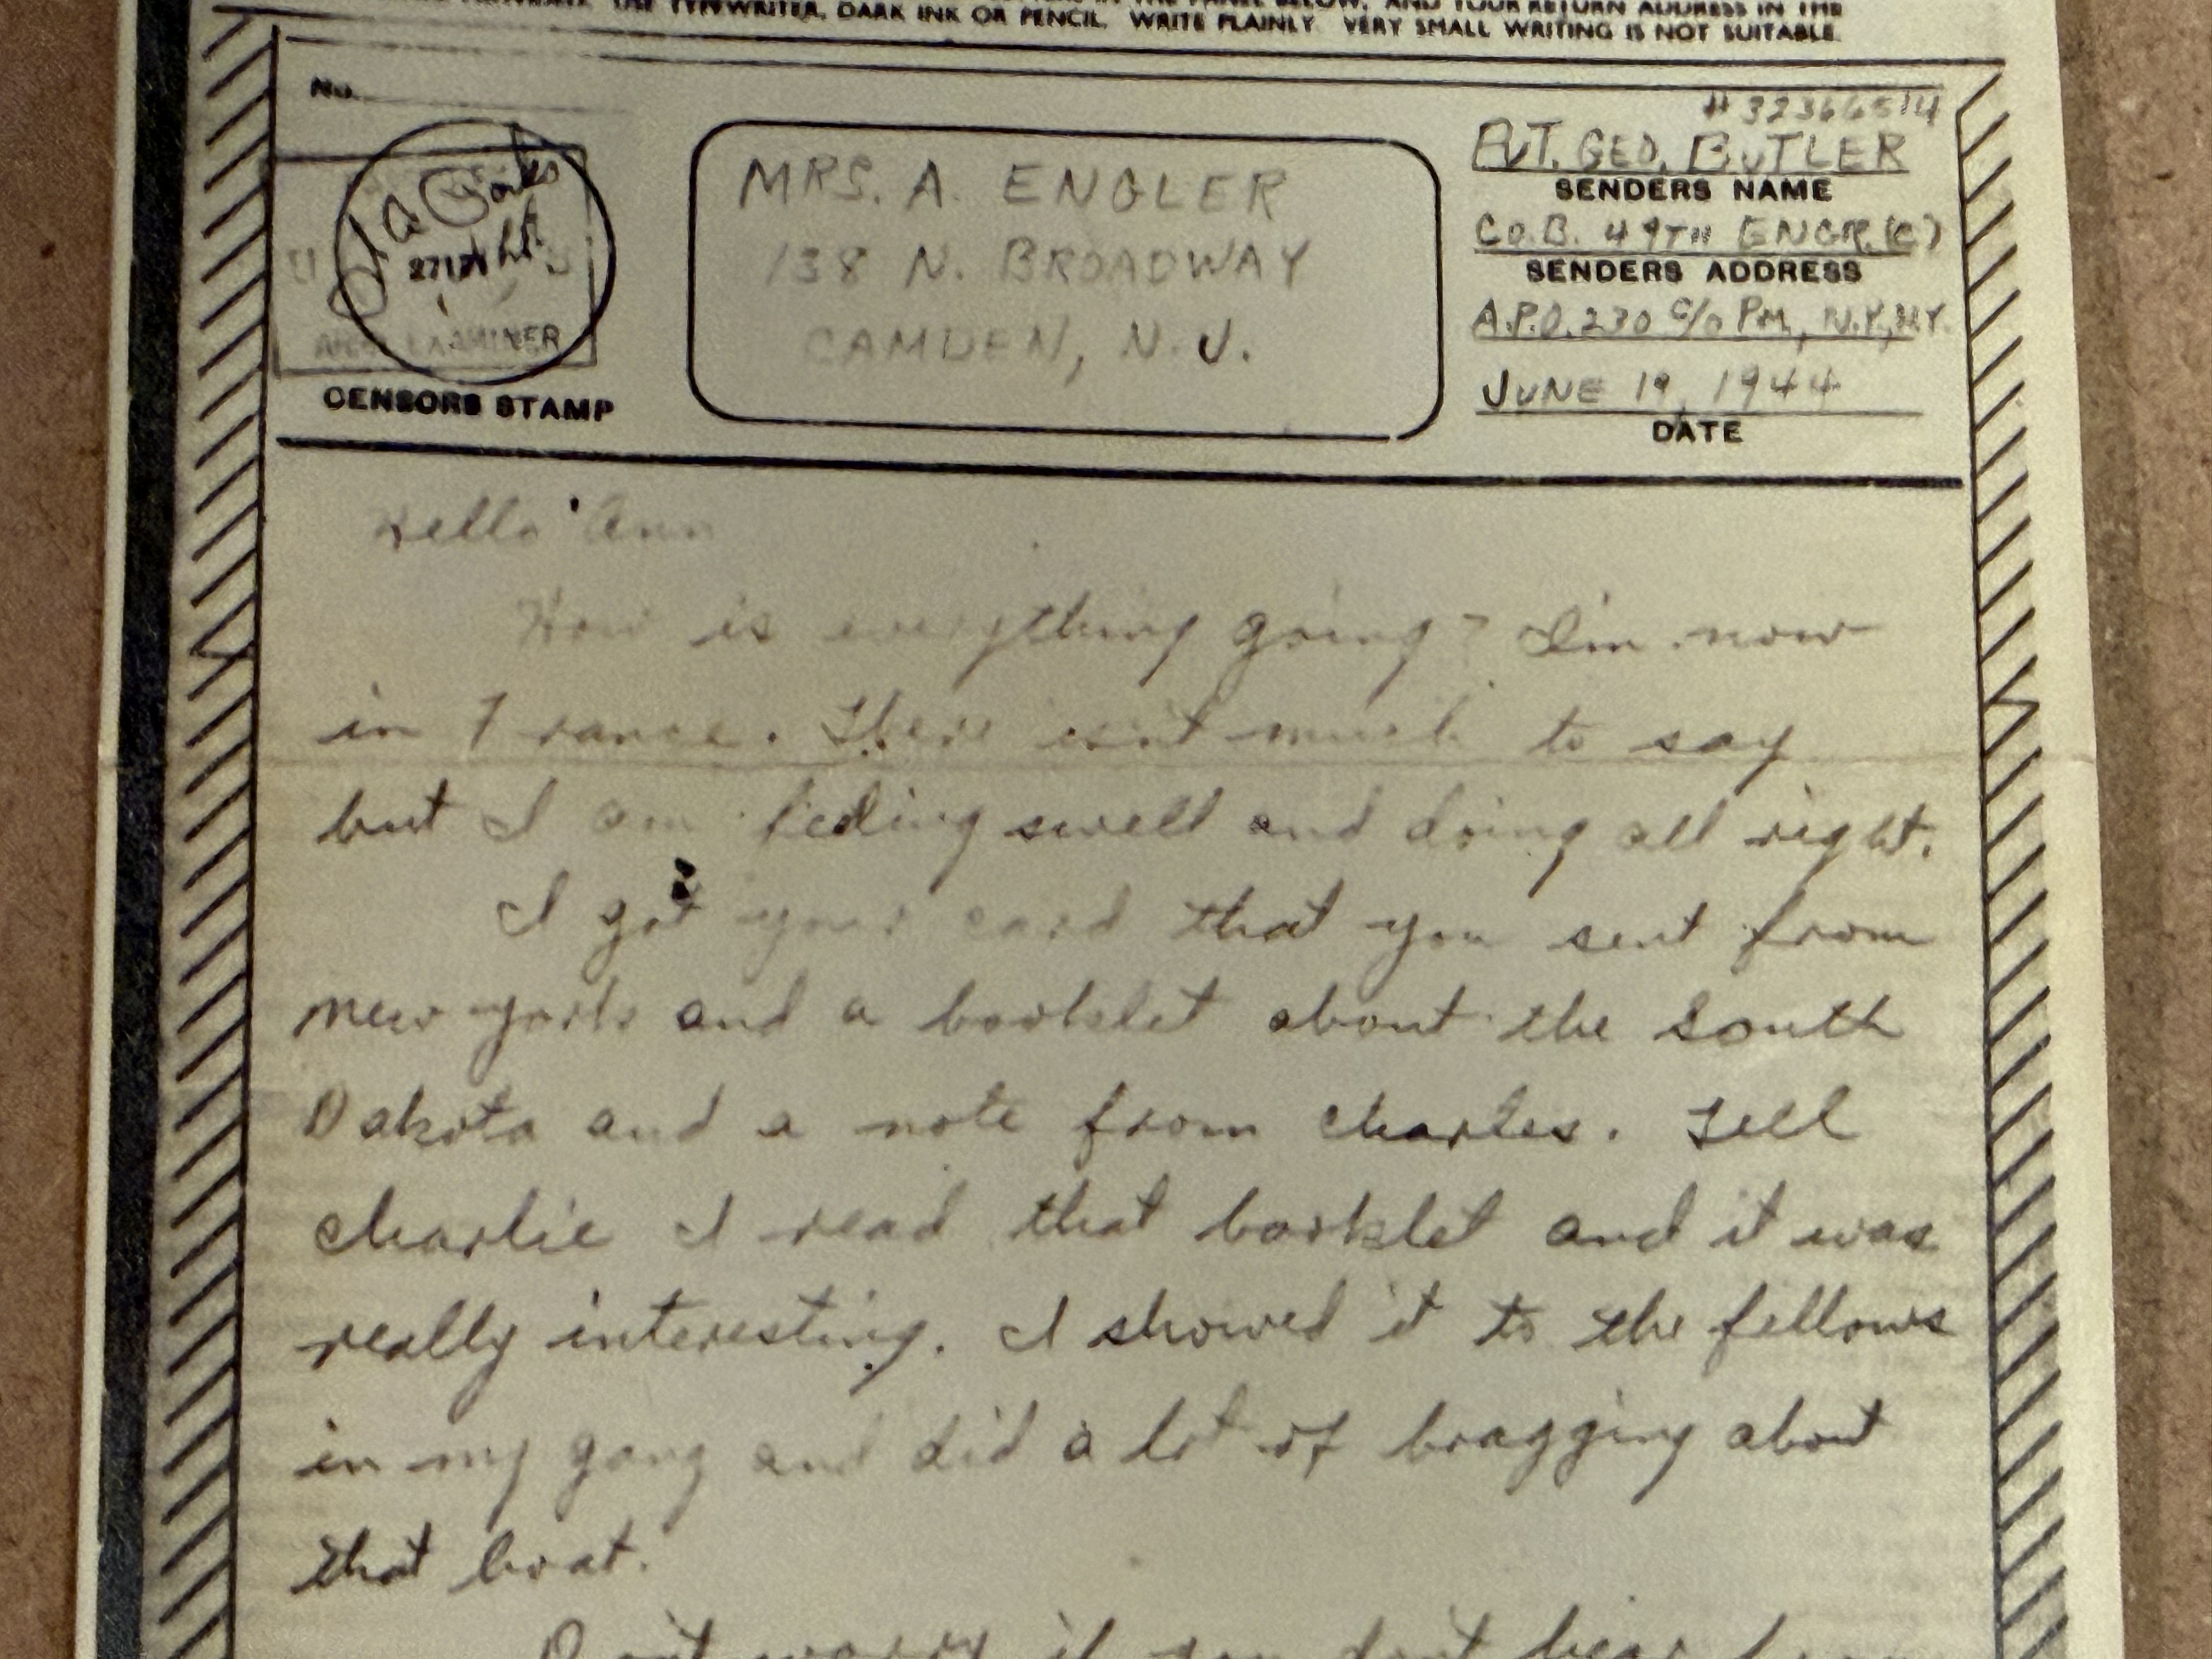 THE PANEL BELOW, AND YOUR RETURN ADDRESS IN THE
USE TYPEWRITER, DARK INK OR PENCIL. WRITE PLAINLY. VERY SMALL WRITING IS NOT SUITABLE.
No.
EXAMINER
CENSORS STAMP
MRS. A. ENGLER
138 N. BROADWAY
CAMDEN, N.J.
PVT. GEO. BUTLER
SENDERS NAME
CO.B. 49TH ENGR.(C)
SENDERS ADDRESS
A.P.O. 230 C/O PM, N.Y., N.Y.
JUNE 19, 1944
DATE
Hello Ann
How is everything going? I'm now
in France. There isn't much to say
but I am feeling swell and doing all right.
I got your card that you sent from
new york and a booklet about the South
Dakota and a note from Charles. Tell
Charlie I read that booklet and it was
really interesting. I showed it to the fellows
in my gang and did a lot of bragging about
that boat.
Don't worry if you don't hear from